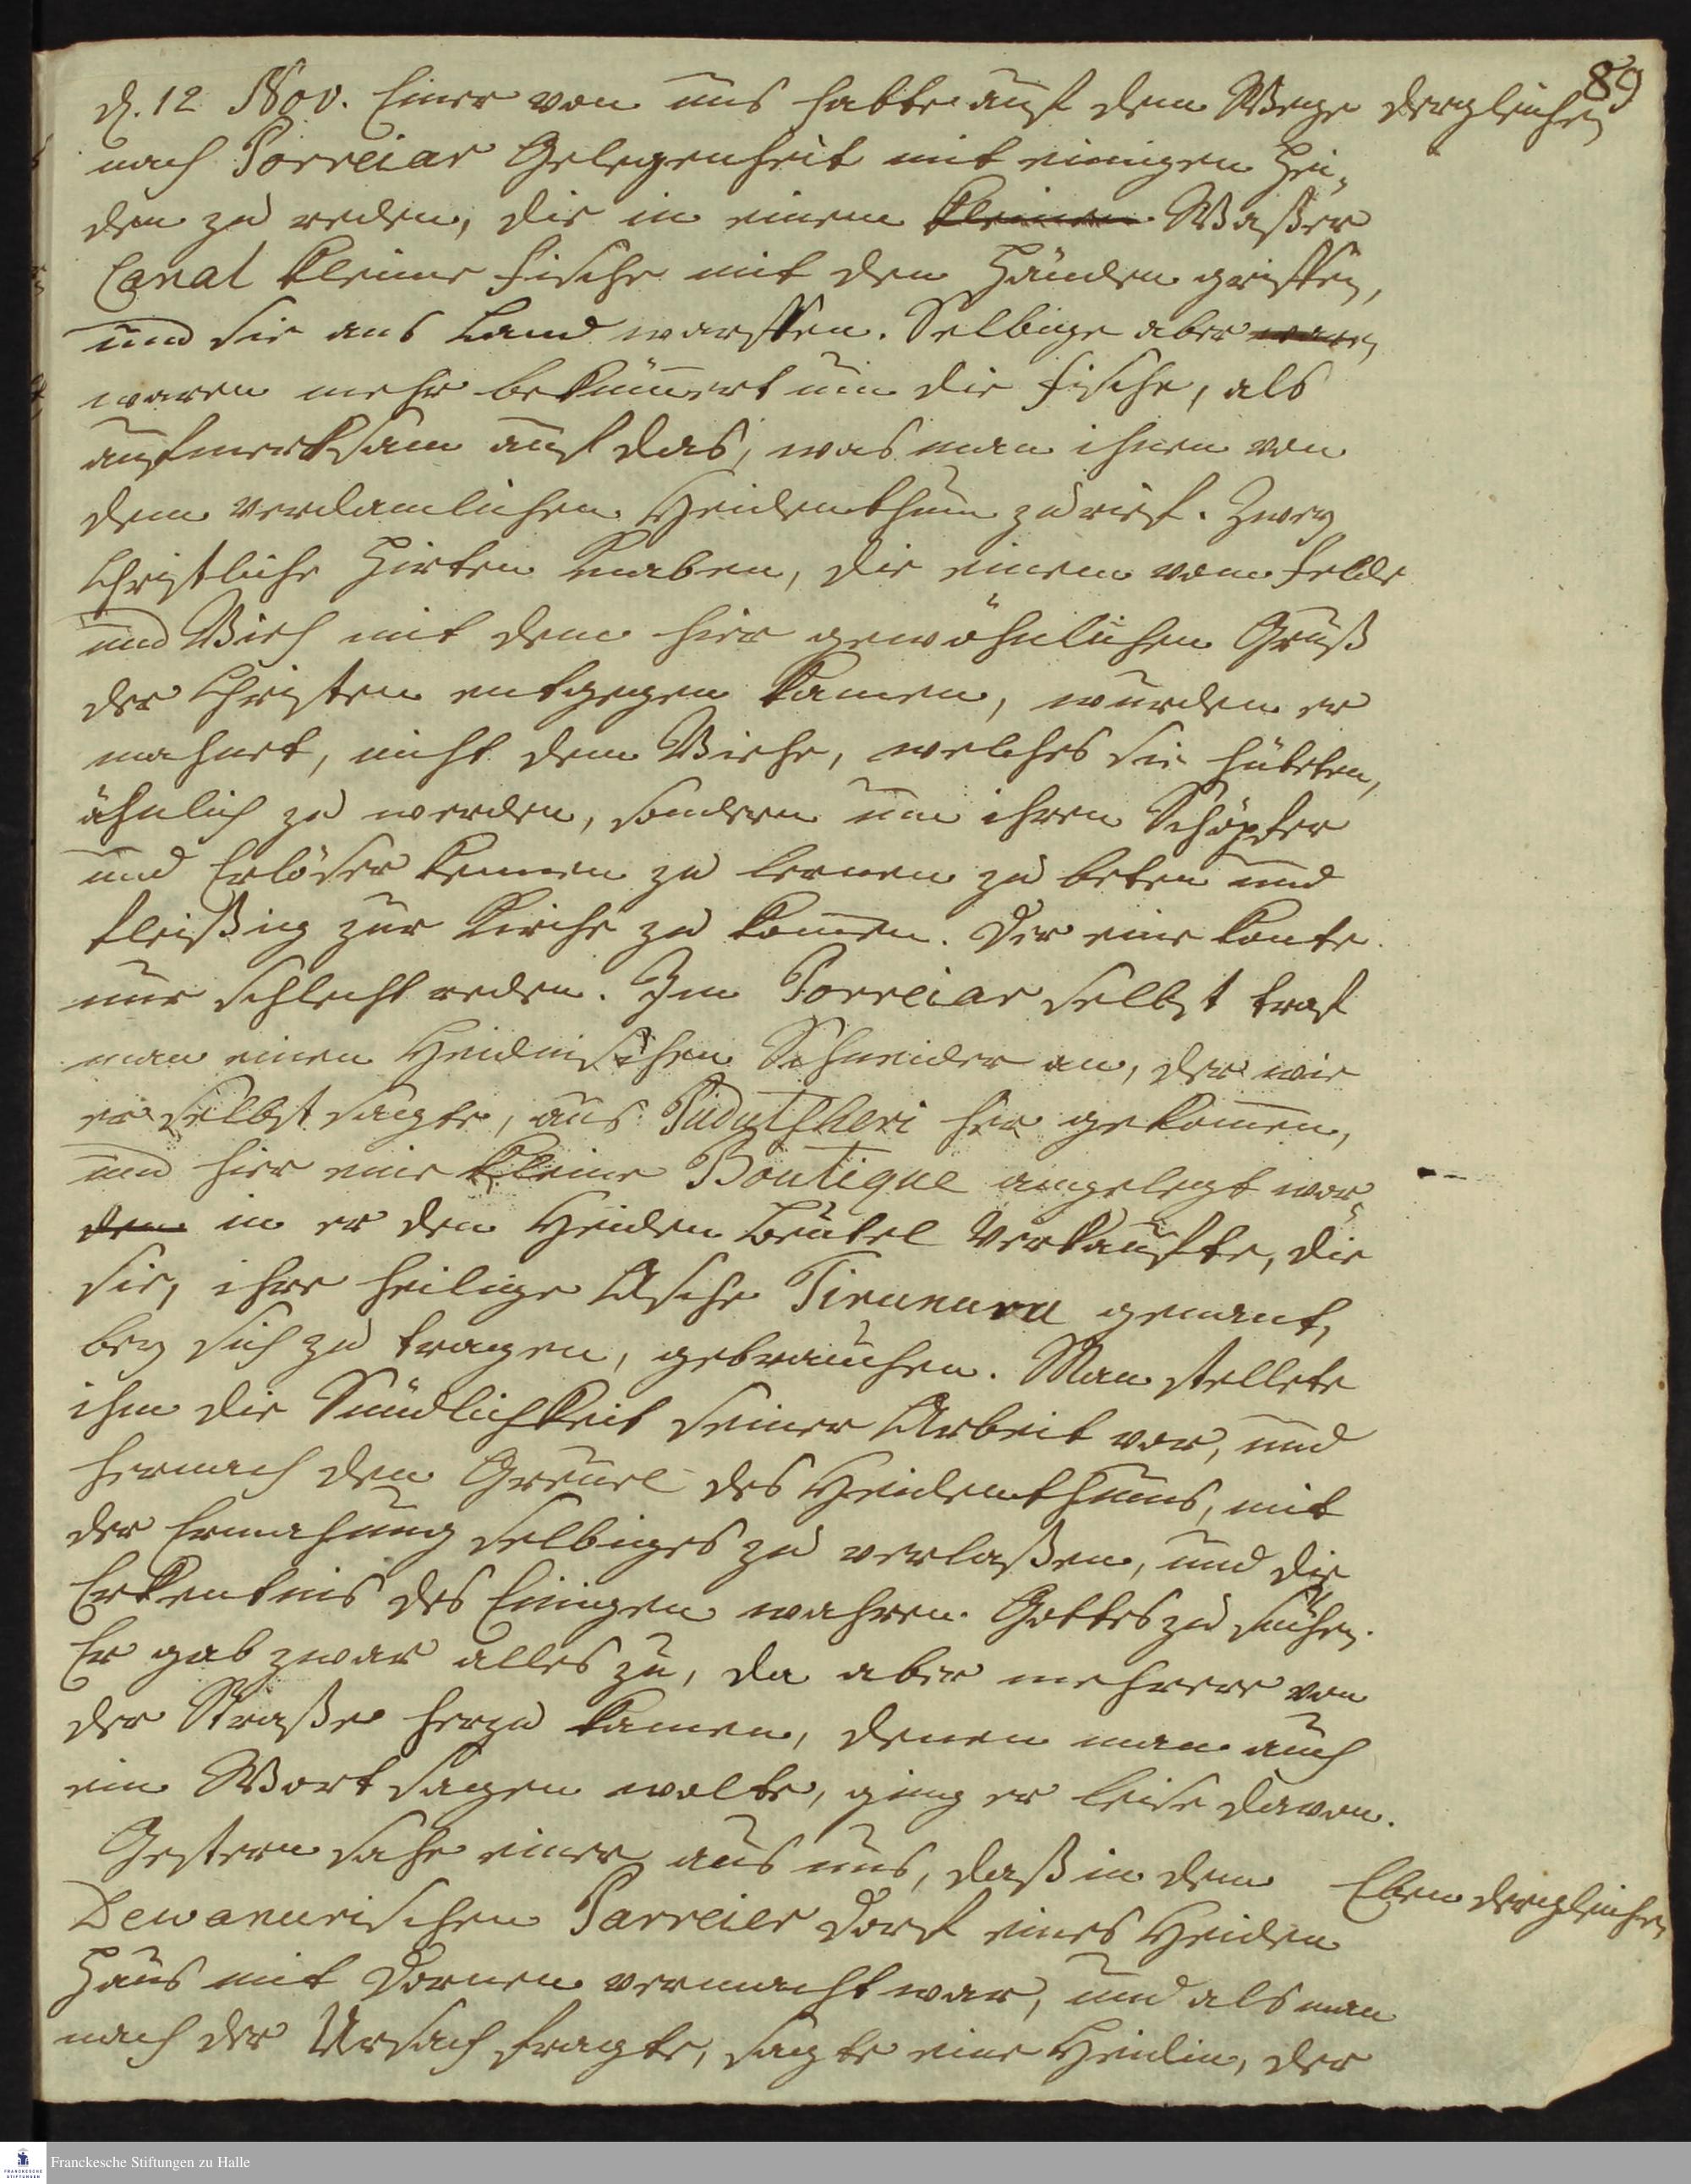 89
d. 12 Nov. Einer von uns hatte auf dem Wege
dergleichen
nach Porreiar Gelegenheit mit einigen Hei-
den zu reden, die in einem kleinen Waßer
Canal kleine Fische mit den Händen griffen,
und sie ans Land warffen. Selbige aber waren
waren mehr bekümmert um die Fische, als
aufmerksam auf das, was man ihnen von
dem verdamlichen Heidenthum zurief. Zwey
Christliche Hirten Knaben, die einem vom Felde
und Vieh mit dem hier gewöhnlichen Gruß
der Christen entgegen kamen, wurden er
mahnet, nicht dem Viehe, welches sie hüteten,
ähnlich zu werden, sondern um ihren Schöpfer
und Erlöser kennen zu lernen zu beten und
fleißig zur Kirche zu kommen. Der eine konte
nur schlecht reden. In Porreiar selbst traf
man einen Heidnischen Schneider an, der wie
er selbst sagte, aus Pudutscheri her gekommen,
und hier eine kleine Boutique angelegt wor-
den in er den Heiden Beutel verkauffte, die
sie, ihre heilige Asche Tirunuru genant,
bey sich zu tragen, gebrauchen. Man stellete
ihm die Sündlichkeit seiner Arbeit vor, und
hernach den Greuel des Heidenthums, mit
der Ermahnung selbiges zu verlaßen, und die
Erkentnis des Einigen wahren Gottes zu suchen.
Er gab zwar alles zu, da aber mehrere von
der Straße herzu kamen, denen man auch
ein Wort sagen wolte, ging er leise davon.
Gestern sahe einer aus uns, daß in dem
Eben dergleichen
Dewanurischen Parreier Dorf eines Heiden
Haus mit Dornen vermacht war, und als man
nach der Ursach fragte, sagte eine Heidin, der
Franckesche Stiftungen zu Halle